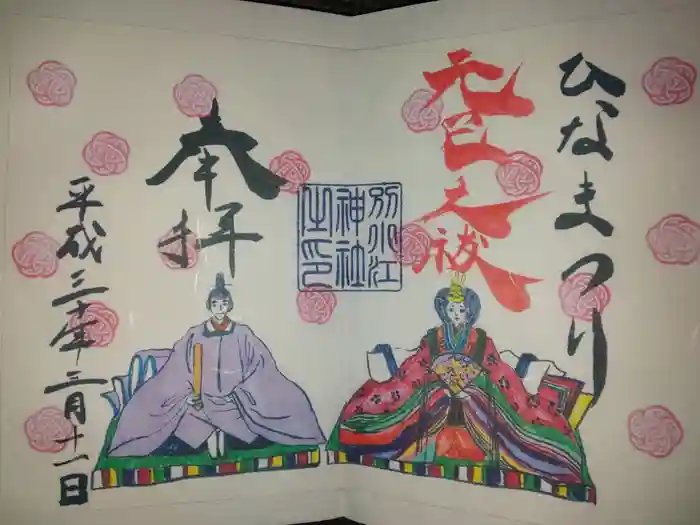 ひなまつり
元巳大祓
別小江
神社
之印
奉拝
平成三十年三月十一日